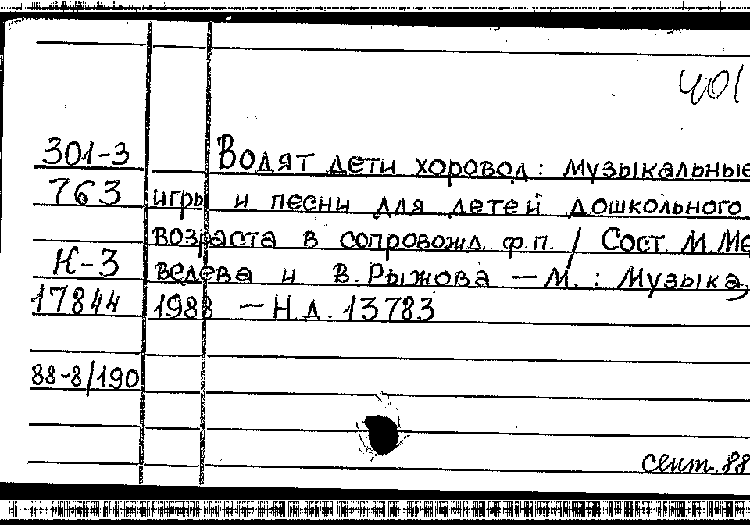 401
301-3 Водят дети хоровод: Музыкальные
763 игры и песни для детей дошкольного
возраста в сопровожд. ф.п. / Сост. М.Ме
К-3 ведева и В.Рыжова — М.: Музыка,
17844 1988 — Н.д. 13783
88-8/190
сент. 88